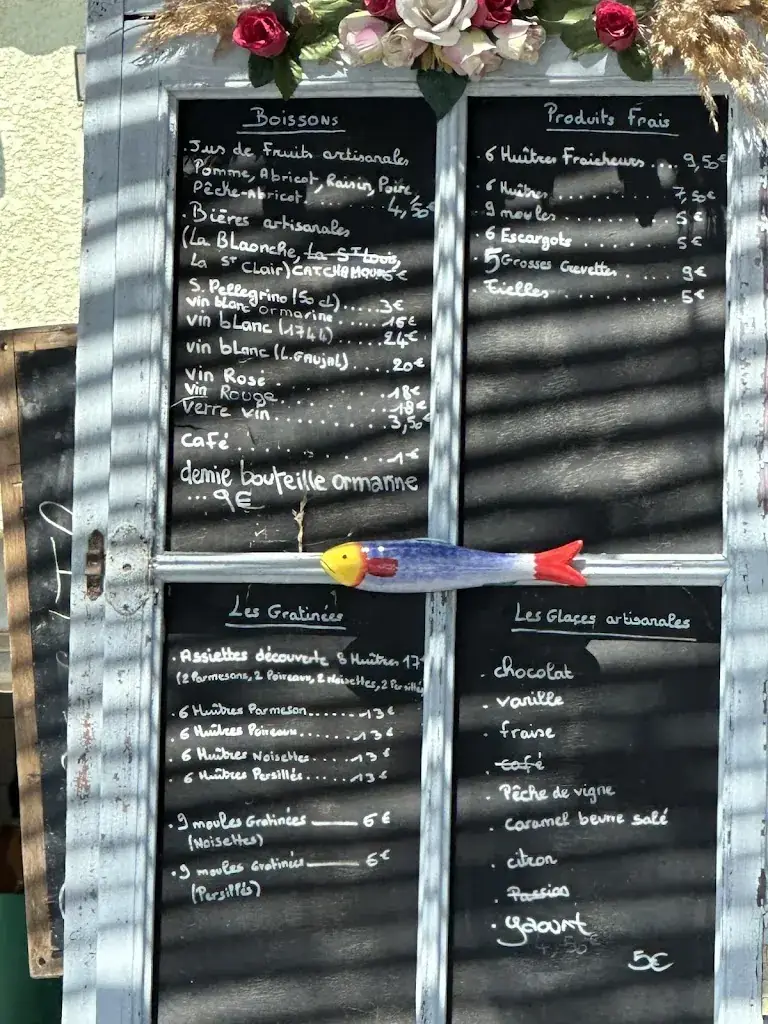 Boissons
. Jus de Fruits artisanales
Pomme, Abricot, Raisin, Poire,
Pêche-Abricot. ... 4,50€
. Bières artisanales
(La Blaonche, La St Louis,
La St Clair) CATCHAMQUE 5€
S. Pellegrino (50 cl)..... 3€
vin blanc ormarine..... 16€
vin blanc (1744)..... 24€
vin blanc (L.GAUJAL)
.... 20€
vin Rosé.
Vin Rouge ..... 18€
verre vin......... 18€
3,50€
café ............ 1€
demie bouteille ormarine
... 9€
Produits Frais
. 6 Huîtres Fraicheurs .... 9,50€
. 6 Huîtres .......... 7,50€
. 9 moules .......... 5€
. 6 Escargots ........ 5€
. 5 Grosses Crevettes .... 9€
. Tielles ............ 5€
Les Gratinées
. Assiettes découverte 8 Huîtres 17
(2 Parmesans, 2 Poireaux, 2 Noisettes, 2 Persillés
. 6 Huîtres Parmesan....... 13€
. 6 Huîtres Poireaux....... 13€
. 6 Huîtres Noisettes..... 13€
. 6 Huîtres Persillés..... 13€
. 9 moules Gratinées —— 6€
(Noisettes)
. 9 moules Gratinées —— 6€
(Persillés)
Les Glaçes artisanales
. chocolat
. vanille
. fraise
. café
. Pêche de vigne
. caramel beurre salé
. citron
. Passion
. yaourt
4,50€
5€